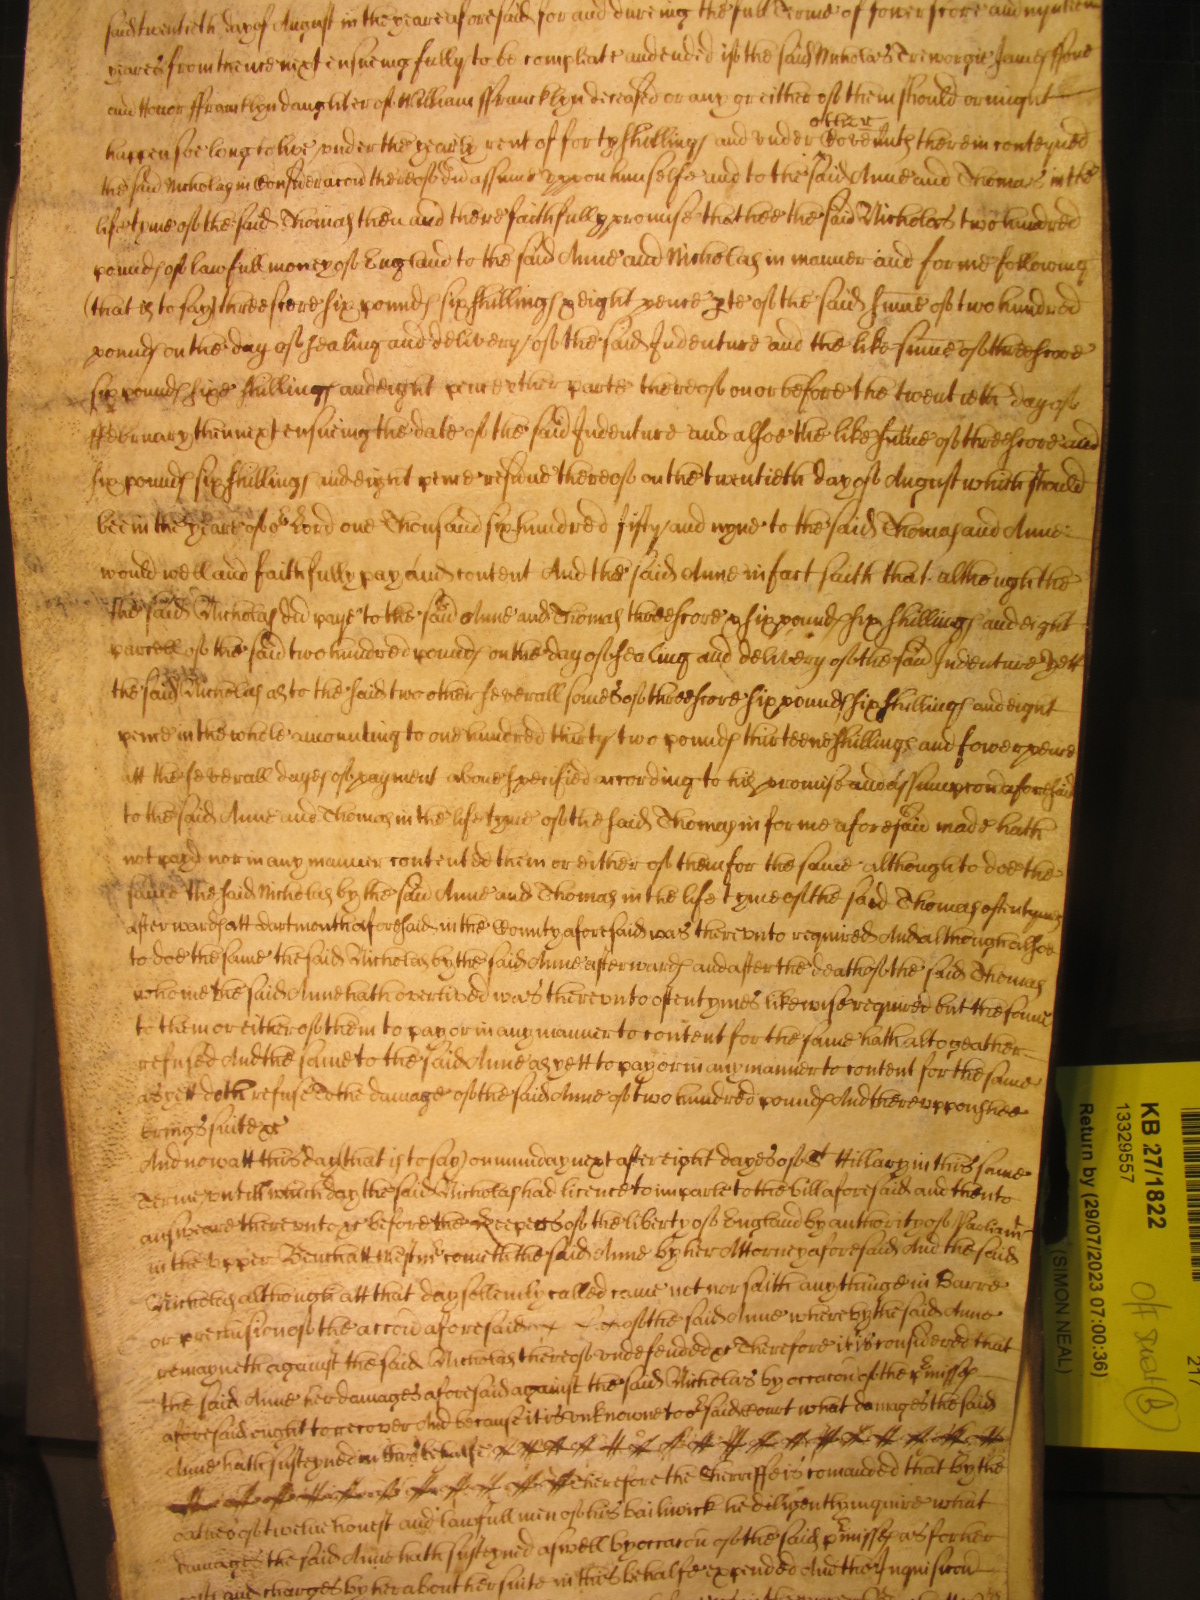 said twentieth day of August in the yeare aforesaid for and dureing the full Terme of fower score and nyneteene
yeares from thence next ensueing fully to be compleate and ended if the said Nicholas Treworgie James ffone
and Honor ffrancklyn daughter of William ffrancklyn deceased or any or either of them should or might
happen soe long to live under the yearly rent of forty shillings and under other Coven'ts therein conteyned
the said Nicholas in Consideracon thereof did assume uppon himselfe and to the said Anne and Thomas in the
life tyme of the said Thomas then and there faithfully promise that hee the said Nicholas two hundred
pounds of lawfull money of England to the said Anne and Nicholas in manner and forme following
(that is to say) threescore six pounds six shillings & eight pence pte of the said summe of two hundred
pounds on the day of sealing and delivery of the said Indenture and the like summe of threescore
six pounds sixe shillings and eight pence other parte thereof on or before the twentieth day of
ffebruary then next ensueing the date of the said Indenture and alsoe the like summe of threescore and
six pounds six shillings and eight pence residue thereof on the twentieth day of August which should
bee in the yeare of or Lord one Thousand six hundred fifty and nyne to the said Thomas and Anne
would well and faithfully pay and content And the said Anne in fact saith that although the
the said Nicholas did paye to the said Anne and Thomas threescore & six pounds six shillings and eight
parcell of the said two hundred pounds on the day of sealing and delivery of the said Indenture Yett
the said Nicholas as to the said two other severall somes of threescore six pounds six shillings and eight
pence in the whole amounting to one hundred thirty two pounds thirteene shillings and fower pence
att the severall dayes of payment above specified according to his promise and assumpcon aforesaid
to the said Anne and Thomas in the life tyme of the said Thomas in forme aforesaid made hath
not payd nor in any manner contented them or either of them for the same although to doe the
same the said Nicholas by the said Anne and Thomas in the life tyme of the said Thomas oftentymes
afterwards att Dartmouth aforesaid in the County aforesaid was thereunto required And although alsoe
to doe the same the said Nicholas by the said Anne afterwards and after the death of the said Thomas
whome the said Anne hath overlived was thereunto oftentymes likewise required but the same
to them or either of them to pay or in any manner to content for the same hath altogeather
refused And the same to the said Anne as yett to pay or in any manner to content for the same
as yett doth refuse To the damage of the said Anne of two hundred pounds And thereuppon shee
brings suite &c
And now att this day (that is to say) on munday next after eight dayes of St Hillary in this same
Terme untill which day the said Nicholas had licence to imparle to the bill aforesaid and then to
answeare thereunto &c before the Keepers of the liberty of England by authority of Parliamt
in the upper Bench att Westmr cometh the said Anne by her Attorney aforesaid And the said
Nicholas although att that day sollemly called came not nor saith any thinge in Barre
or preclusion of the accon aforesaid of the said Anne whereby the said Anne
remayneth against the said Nicholas thereof undefended &c Therefore it is considered that
the said Anne her damages aforesaid against the said Nicholas by occacon of the pmisses
aforesaid ought to recover And because it is unknowne to or said Court what damages the said
Anne hath susteyned in this behalfe
Therefore the Sherriffe is comanded that by the
oathes of twelve honest and lawfull men of his bailiwick he diligently inquire what
damages the said Anne hath susteyned aswell by occacon of the said pmisses as for her
costs and charges by her about her suite in this behalfe expended And the Inquisicon
KB 27/1822
13329557
Return by (29/07/2023 07:00:36)
(SIMON NEAL)
217